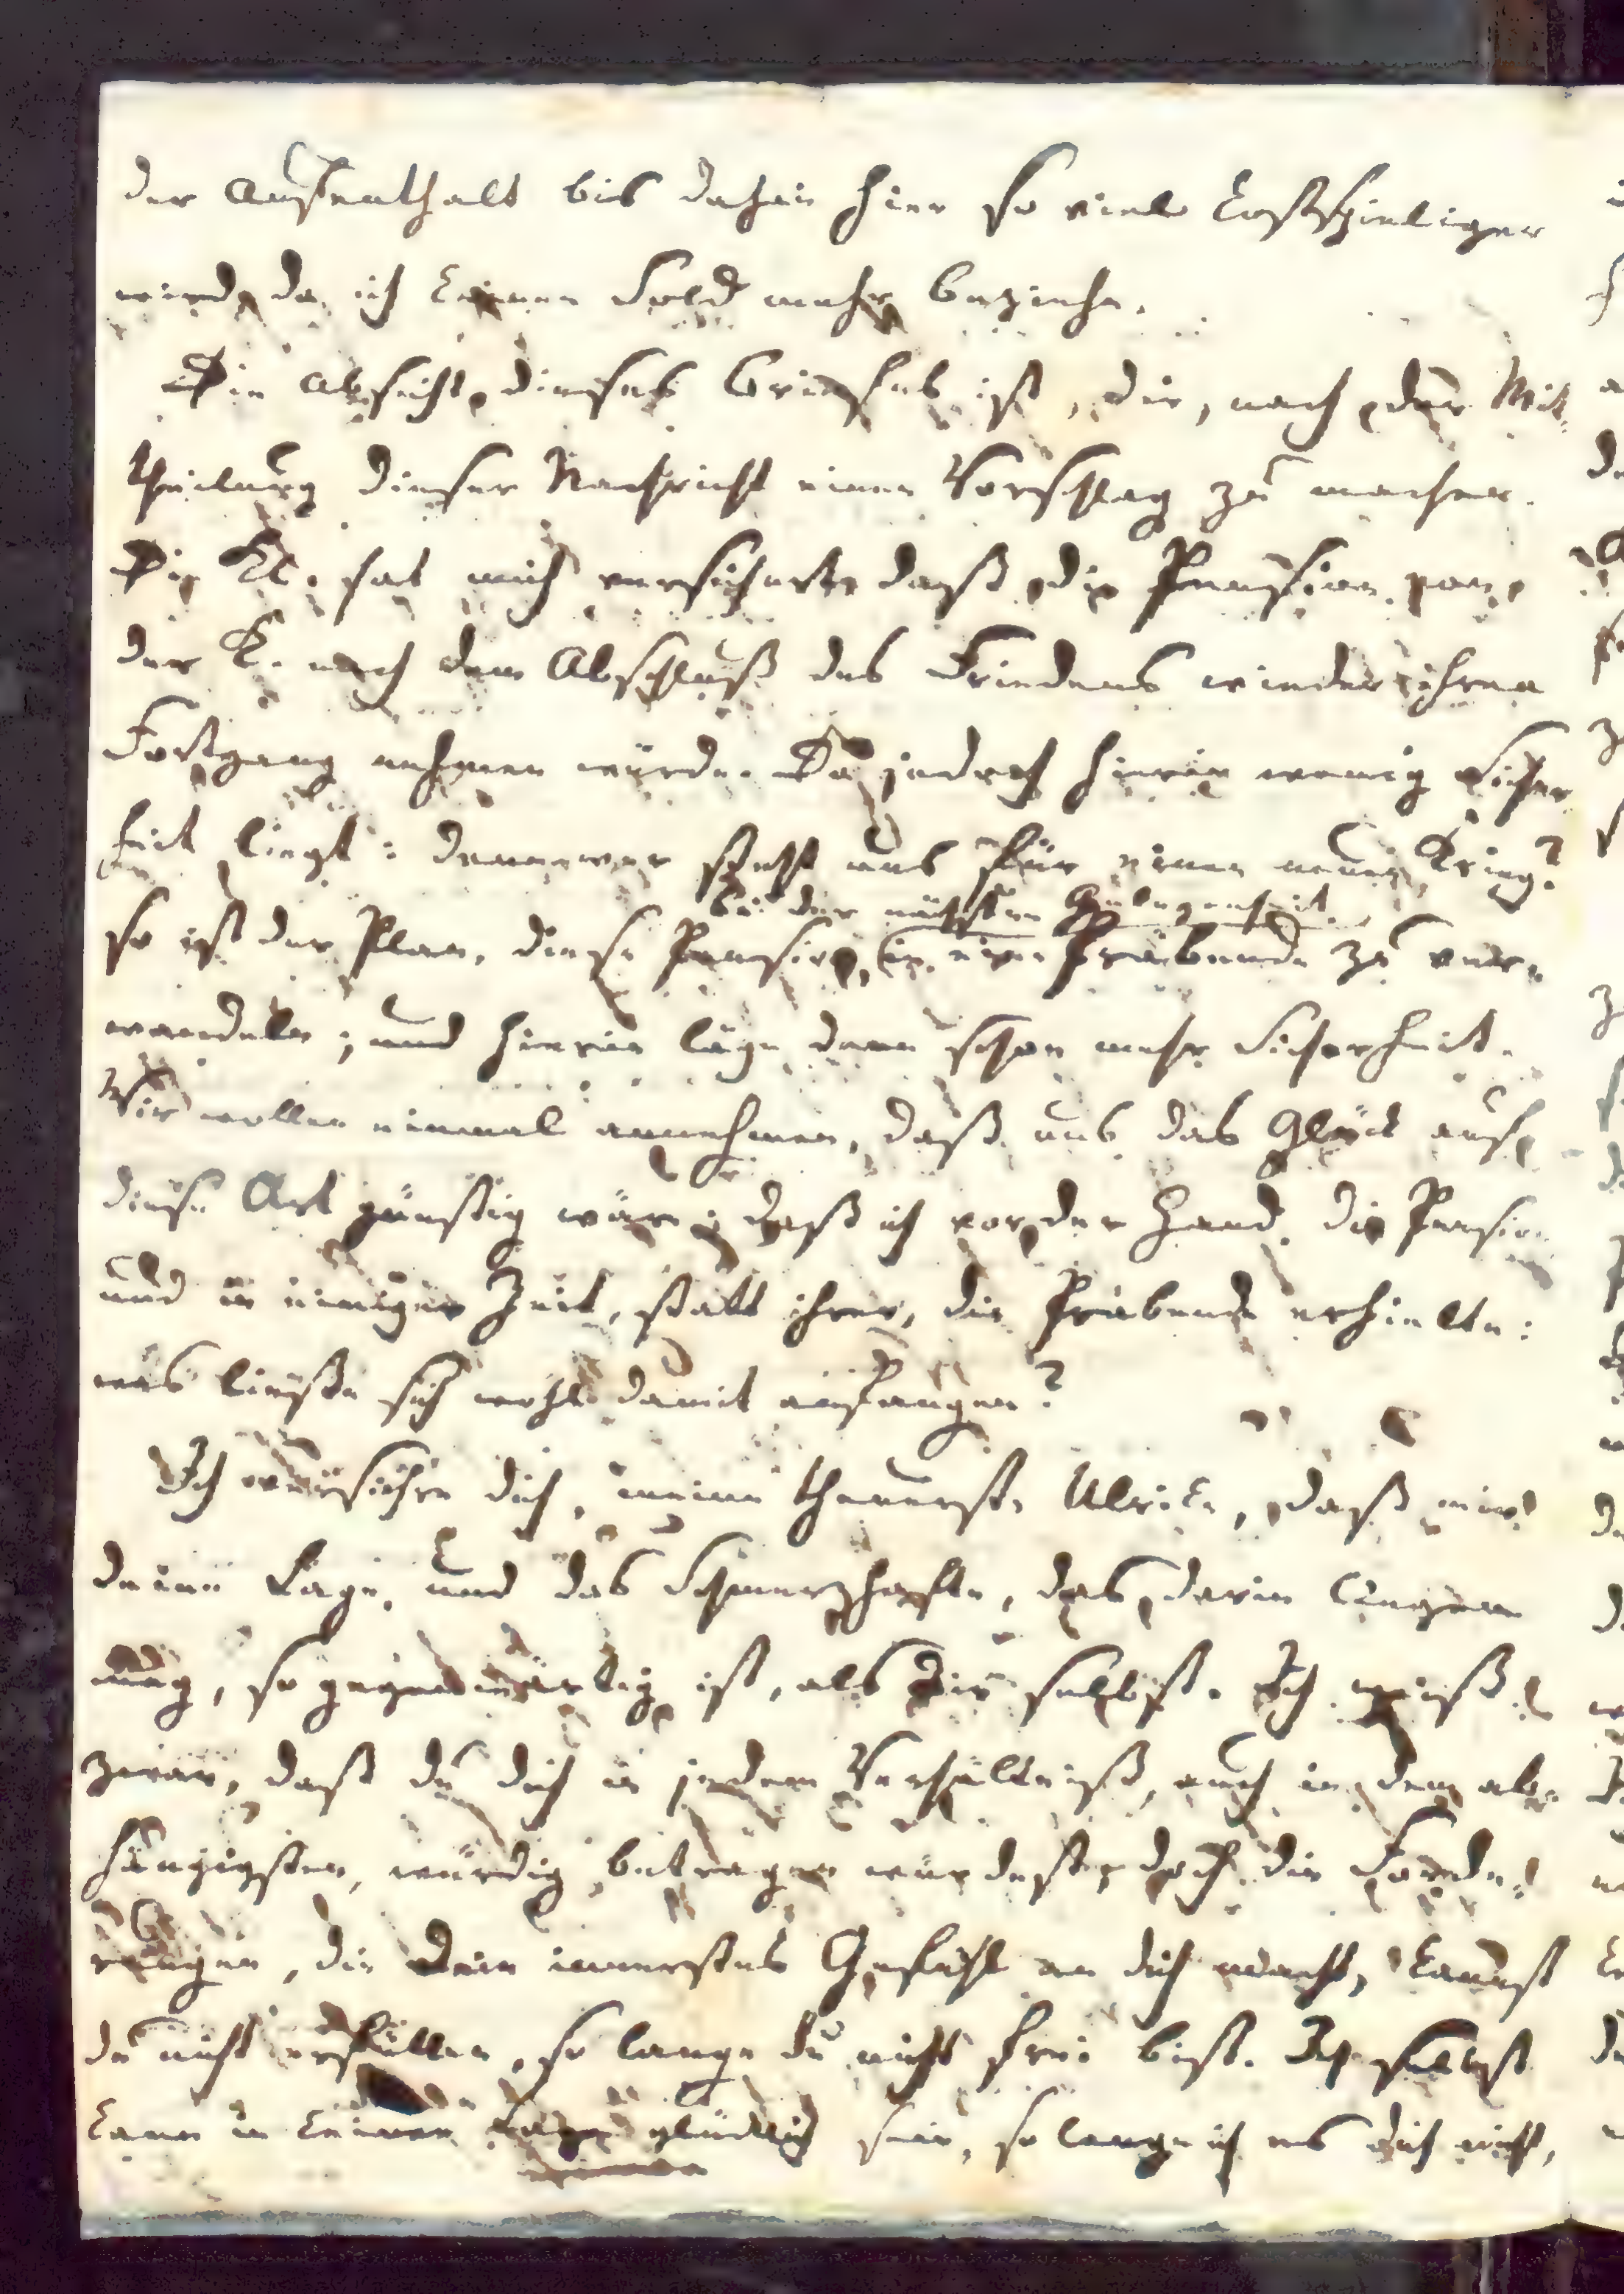 der Aufenthalt bis dahin hier so viel kostspieliger
wird, da ich keinen Sold mehr beziehe.
Die Absicht dieses Briefes ist, dir, nach der Mit-
theilung dieser Nachricht einen Vorschlag zu machen.
Die Kl. hat mich versichert, daß die Pension von
der K. nach dem Abschluß des Friedens wieder ihren
Fortgang nehmen würde. Da jedoch hierin wenig Sicher
heit liegt: denn wer steht uns für einen neuen Krieg?
bei der nächsten Gelegenheit
so ist der Plan, diese Pension, in eine Präbende zu ver-
wandeln; und hierin läge dann schon mehr Sicherheit.
Wir wollen einmal annehmen, daß uns das Glück auf
diese Art günstig wäre; daß ich vor der Hand die Pension
und in einiger Zeit, statt ihrer, die Präbende erhielte:
was ließe sich wohl damit anfangen?
Ich versichre dich, meine theuerste Ulrike, daß mir
deine Lage, und das Schmerzhafte, das darin liegen
mag, so gegenwärtig ist, als dir selbst. Ich weiß
zwar, daß du dich in jedem Verhältniß, auch in dem ab-
hängigsten, würdig betragen würdest; doch die Forde-
rungen, die dein innerstes Gefühl an dich macht, kannst
du nicht erfüllen, so lange du nicht frei bist. Ich selbst
kann in keiner Lage glücklich sein, so lange ich es dich nicht,